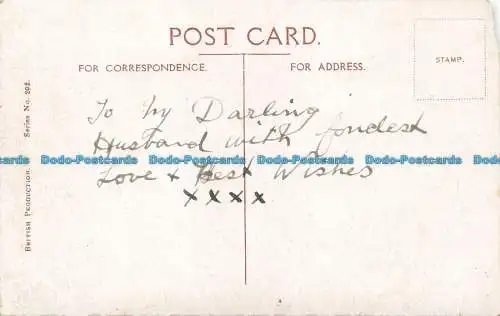 POST CARD.
FOR CORRESPONDENCE.
FOR ADDRESS.
STAMP.
To My Darling
Husband with fondest
Love + Best Wishes
x x x x
British Production. Series No. 202.
Dodo-Postcards Dodo-Postcards Dodo-Postcards Dodo-Postcards